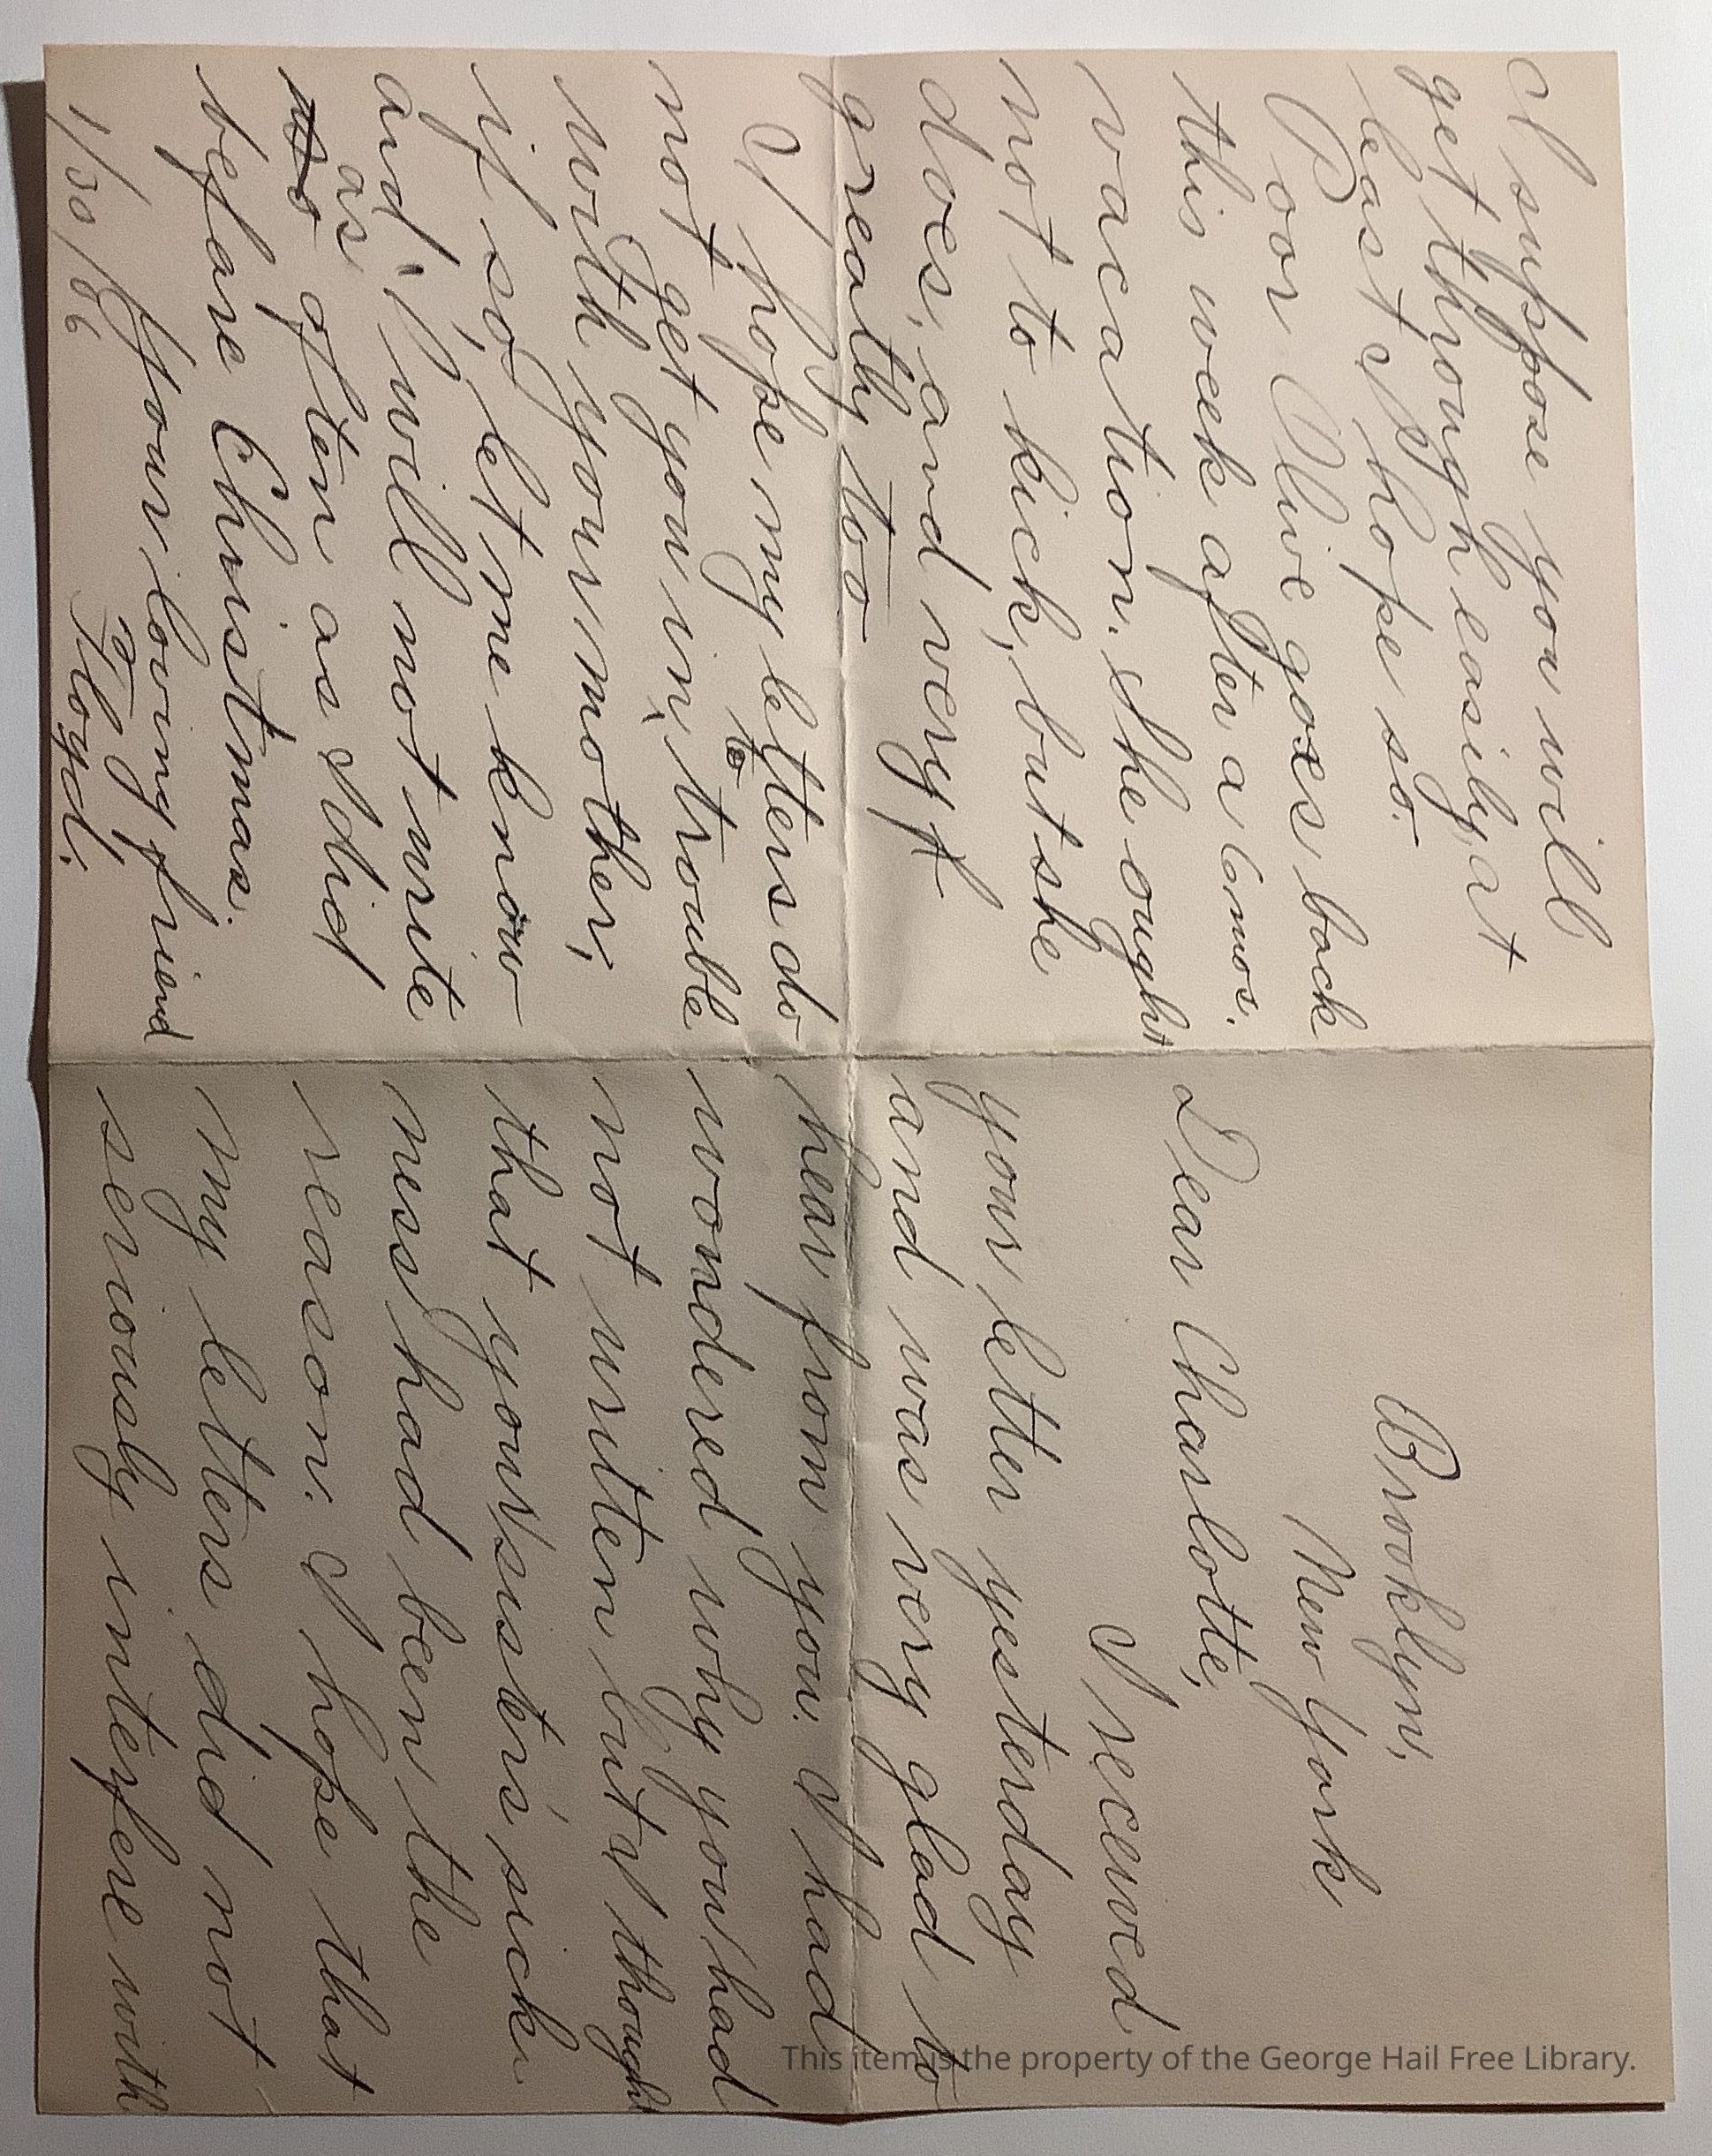 I suppose you will
get through easily, at
least I hope so.
Poor Olive goes back
this week after a 6 mos.
vacation. She ought
not to kick, but she
does, and very
greatly too
I hope my letters do
not get you in, to trouble
with your mother,
if so, let me know
and I will not write
as often as I did
before Christmas.
Your loving friend
Floyd.
1/30/06
Brooklyn,
New York
Dear Charlotte,
I received
your letter yesterday
and was very glad to
hear from you. I had
wondered why you had
not written but I though
that your sister's sick
ness had been the
reason. I hope that
my letters did not
seriously interfere with
This item is the property of the George Hail Free Library.